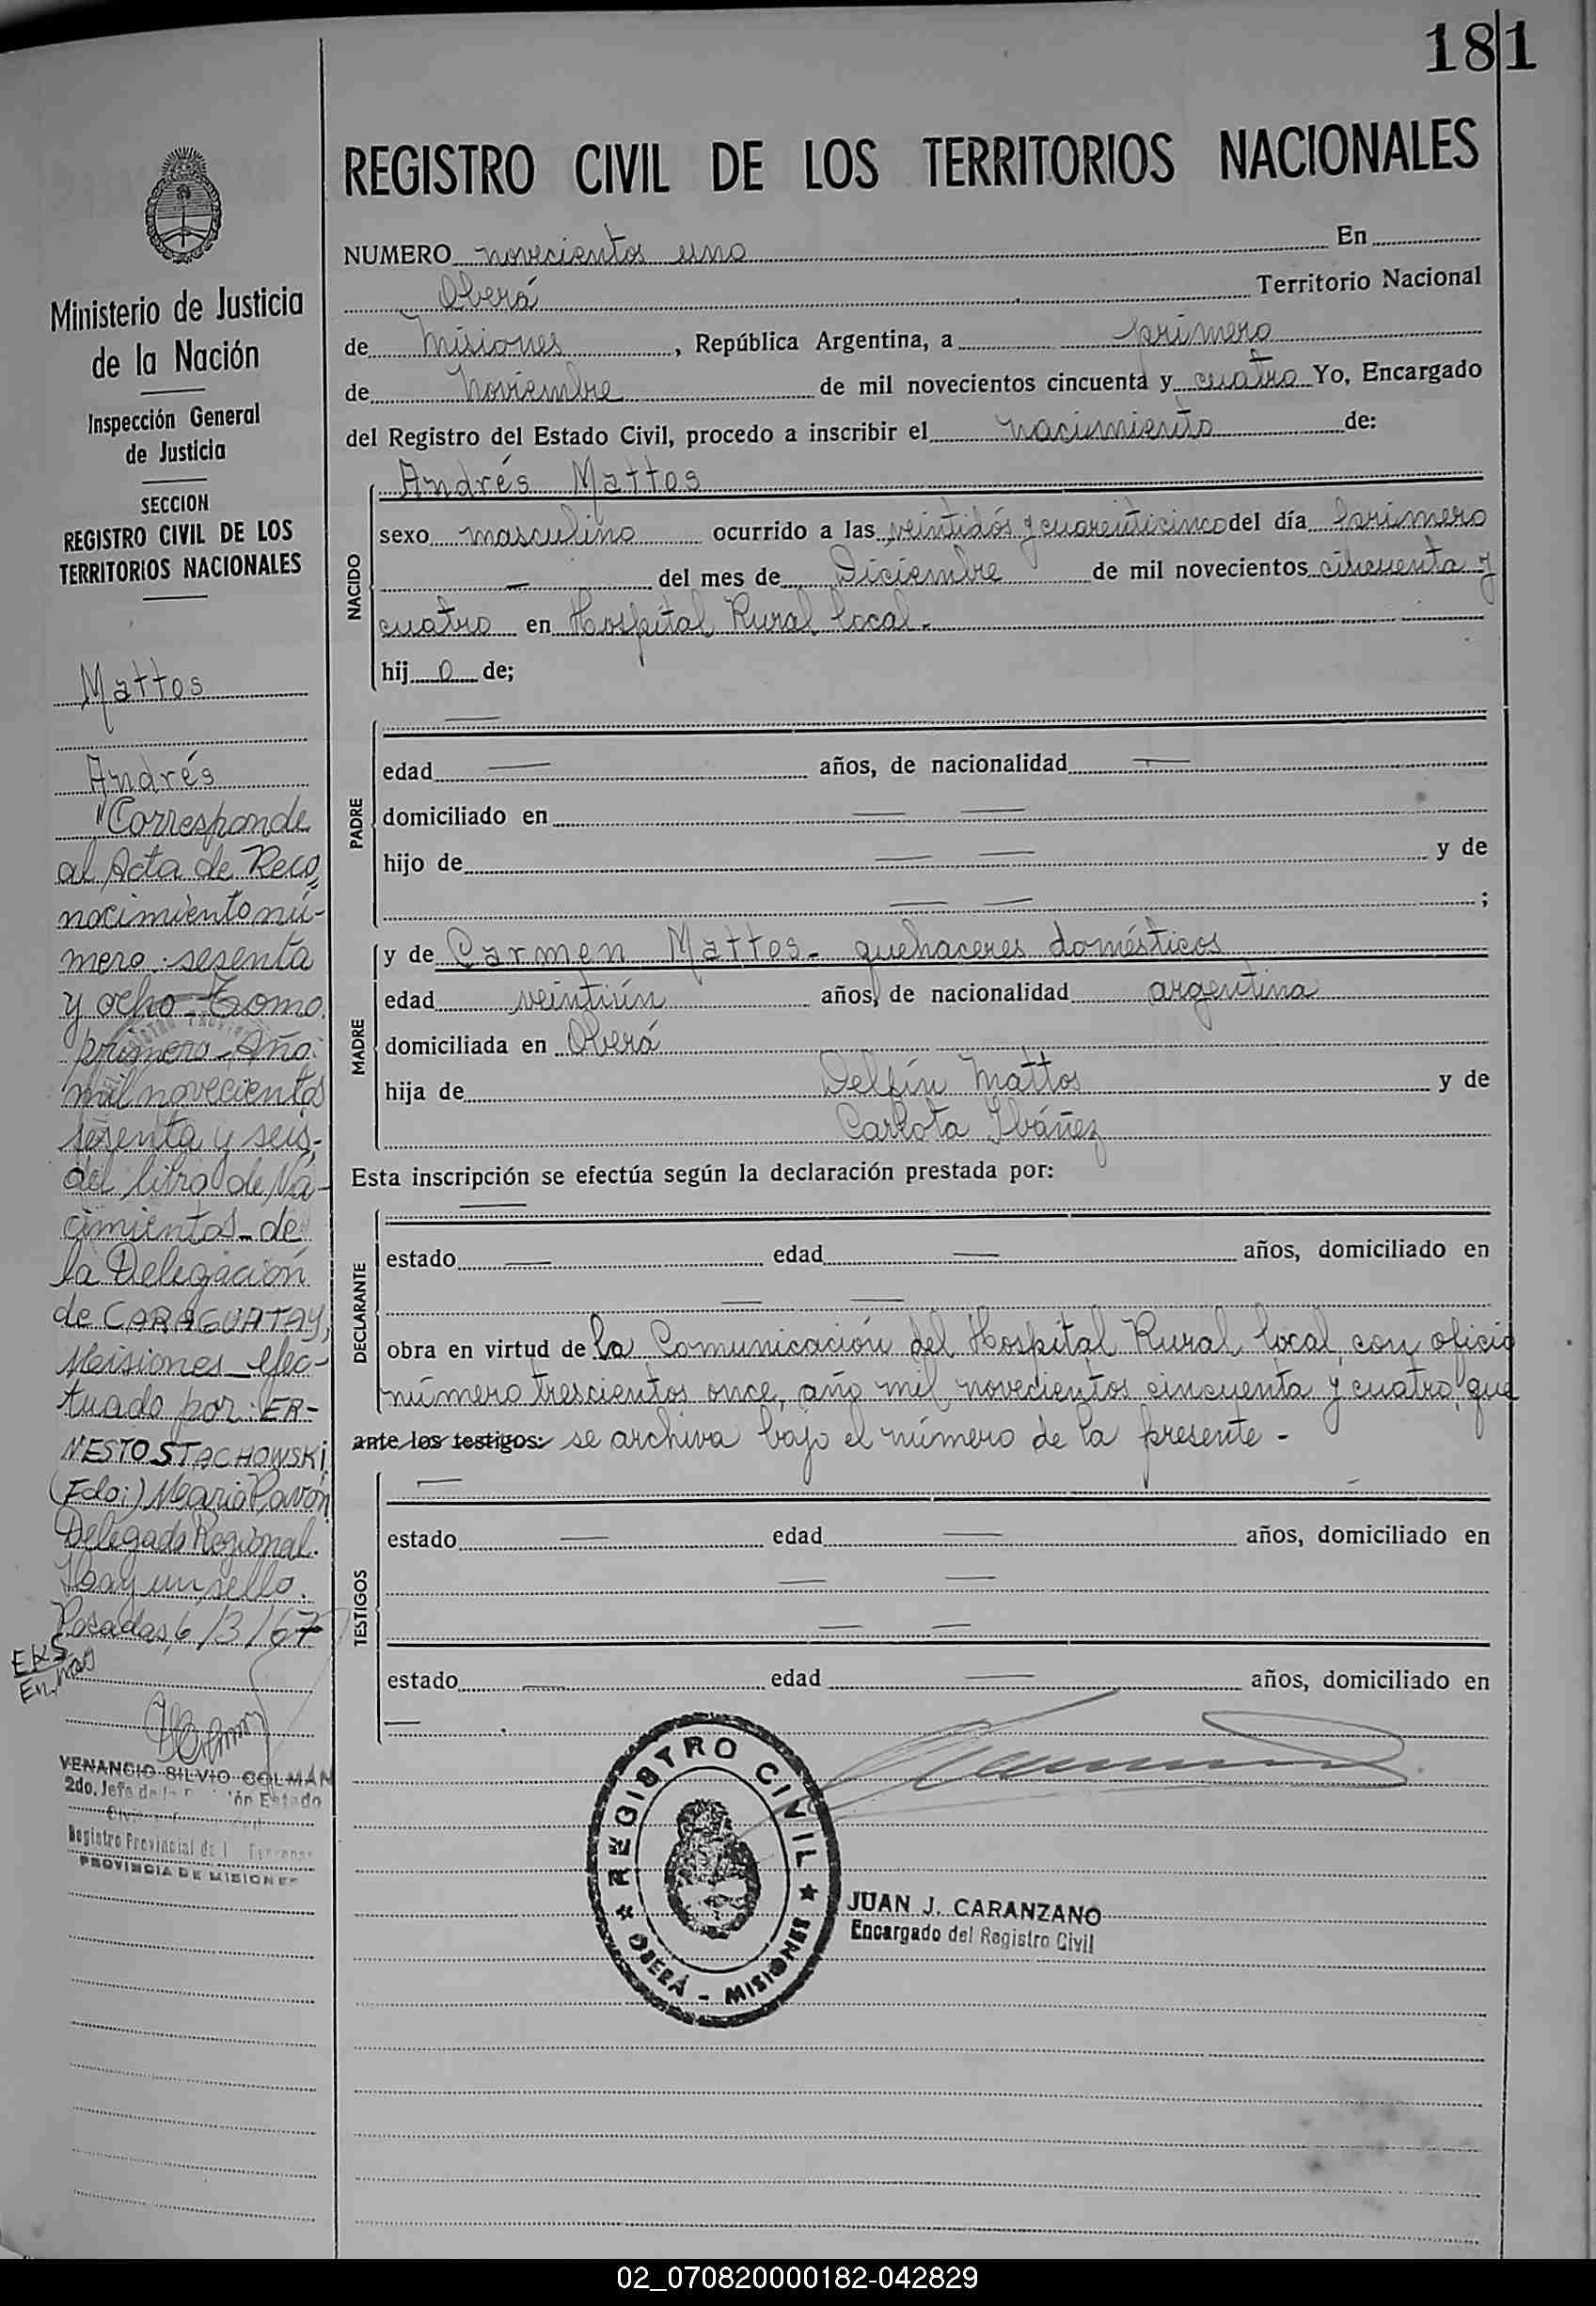 181
REGISTRO CIVIL DE LOS TERRITORIOS NACIONALES
NUMERO novecientos uno En
Oberá Territorio Nacional
de Misiones, República Argentina, a primero
de Noviembre de mil novecientos cincuenta y cuatro Yo, Encargado
del Registro del Estado Civil, procedo a inscribir el nacimiento de:
NACIDO
Andrés Mattos
sexo masculino ocurrido a las veintidós y cuarenticinco del día primero
— del mes de Diciembre de mil novecientos cincuenta y
cuatro en Hospital Rural local.-
hij o de;
PADRE
—
edad — años, de nacionalidad —
domiciliado en — —
hijo de — — y de
— — ;
MADRE
y de Carmen Mattos - quehaceres domésticos
edad veintiún años, de nacionalidad argentina
domiciliada en Oberá
hija de Delfín Mattos y de
Carlota Ibáñez
Esta inscripción se efectúa según la declaración prestada por:
DECLARANTE
—
estado — edad — años, domiciliado en
— —
obra en virtud de la Comunicación del Hospital Rural local, con oficio
número trescientos once, año mil novecientos cincuenta y cuatro, que
ante los testigos: se archiva bajo el número de la presente -
TESTIGOS
—
estado — edad — años, domiciliado en
— —
— —
estado — edad — años, domiciliado en
—
REGISTRO CIVIL
OBERÁ - MISIONES
JUAN J. CARANZANO
Encargado del Registro Civil
Ministerio de Justicia
de la Nación
Inspección General
de Justicia
SECCION
REGISTRO CIVIL DE LOS
TERRITORIOS NACIONALES
Mattos
Andrés
"Corresponde
al Acta de Reco-
nocimiento nú-
mero: sesenta
y ocho - Tomo
primero - Año:
mil novecientos
sesenta y seis,
del libro de Na-
cimientos - de
la Delegación
de CARAGUATAY,
Misiones - efec-
tuado por: ER-
NESTO STACHOWSKI
(Fdo:) Mario Pavón
Delegado Regional.
Hay un sello.
Posadas, 6/3/67
VENANCIO SILVIO COLMÁN
2do. Jefe de la Estado
Registro Provincial de
PROVINCIA DE MISIONES
02_070820000182-042829